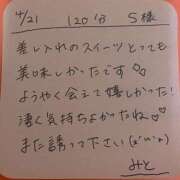 4/21 120分 S様
差し入れのスイーツとっても
美味しかったです♡
ようやく会えて嬉しかった!
凄く気持ちよかったね♡
また誘って下さい(≧∀≦)
みと